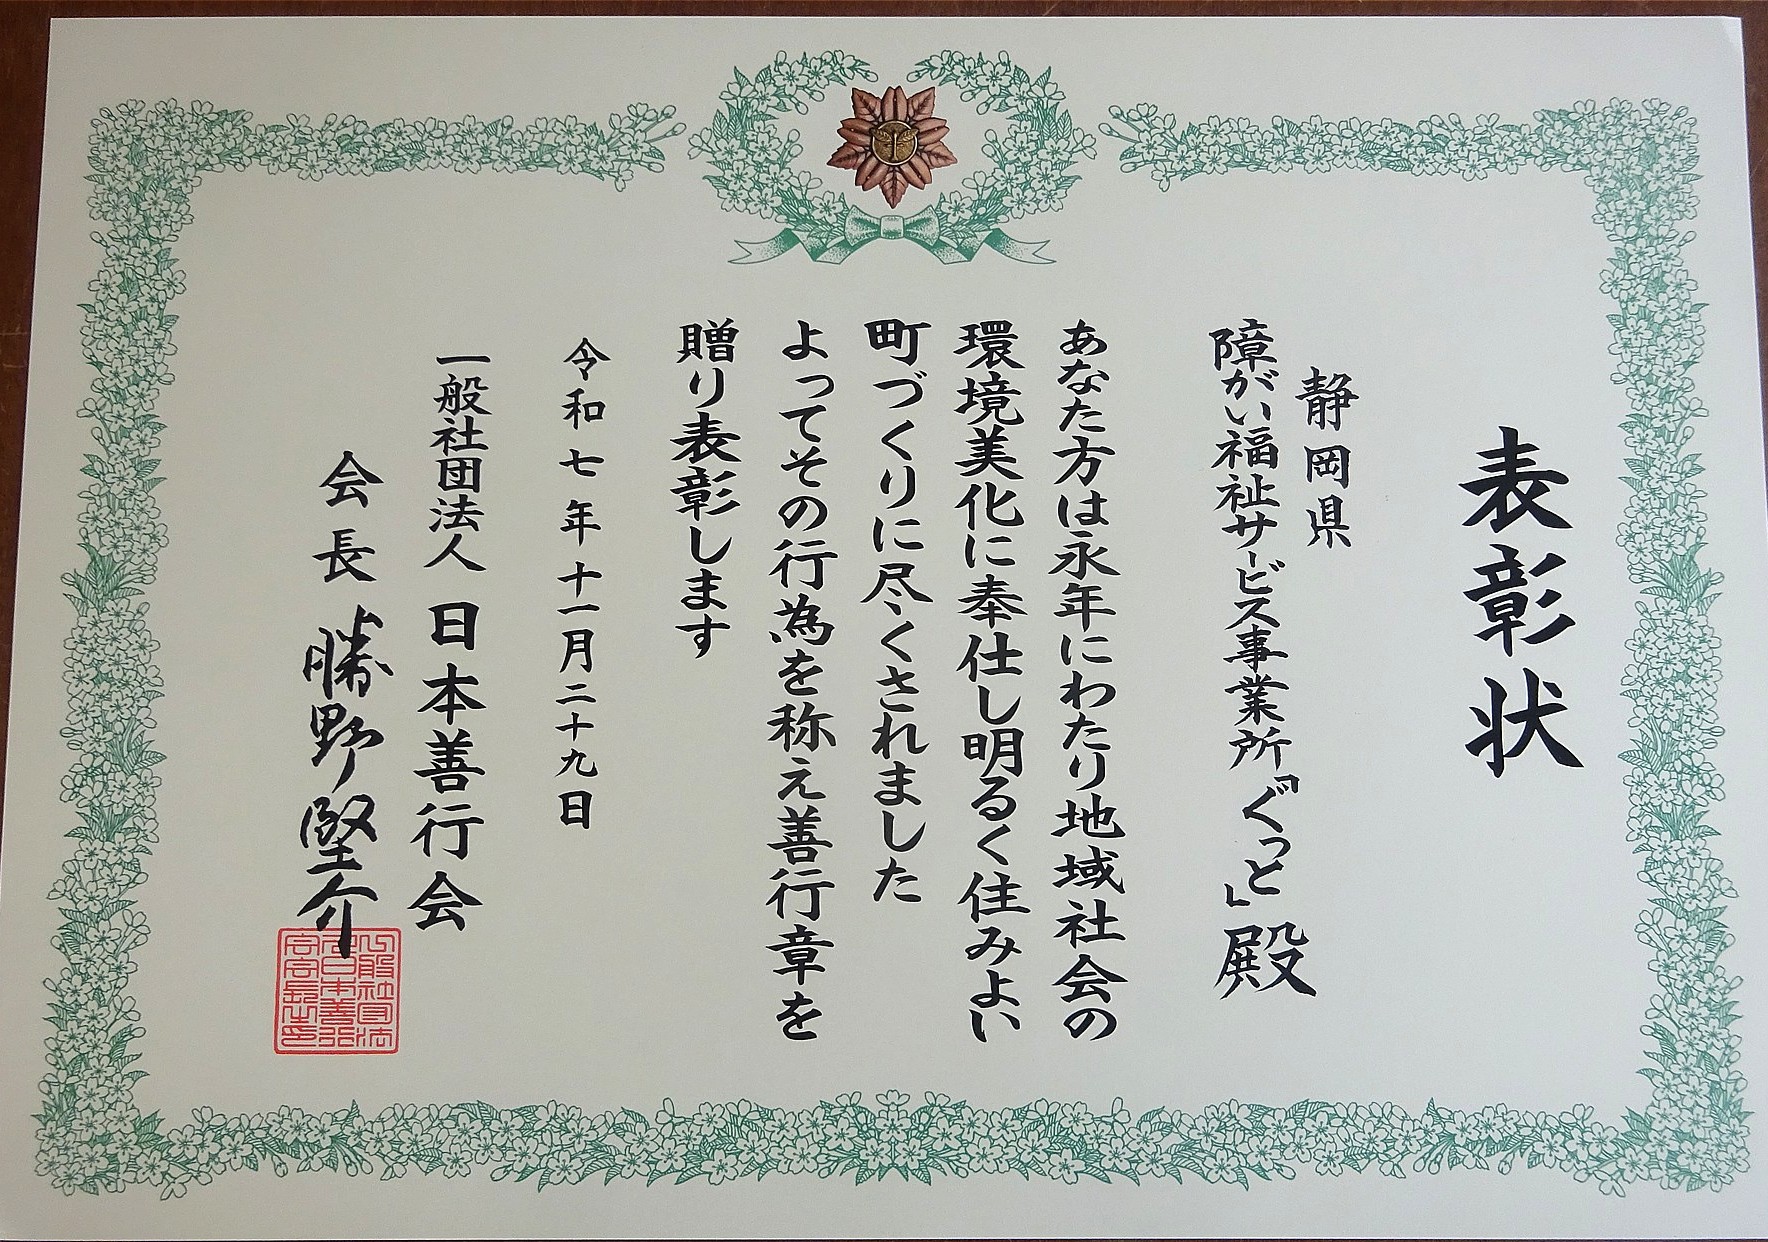 表彰状
静岡県
障がい福祉サービス事業所「ぐっと」殿
あなた方は永年にわたり地域社会の
環境美化に奉仕し明るく住みよい
町づくりに尽くされました
よってその行為を称え善行章を
贈り表彰します
令和七年十一月二十九日
一般社団法人 日本善行会
会長 勝野堅介